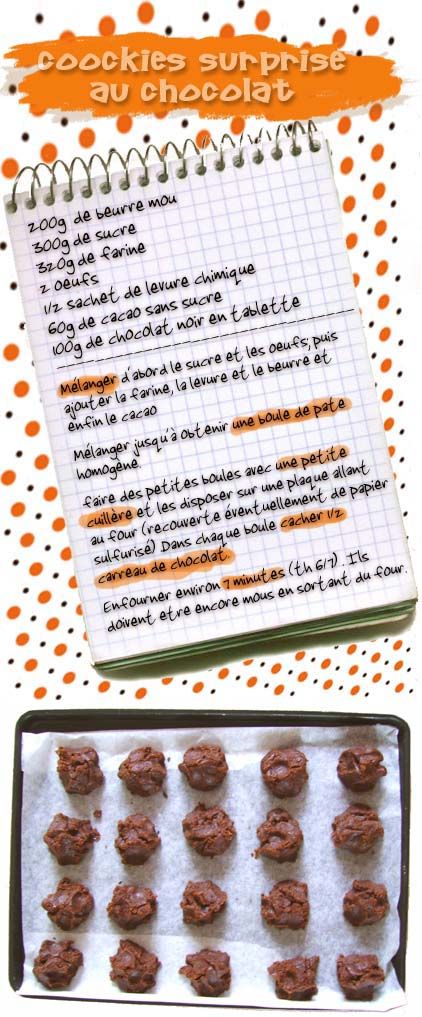 COOCKIES SURPRISE
AU CHOCOLAT
200g de beurre mou
300g de sucre
320g de farine
2 oeufs
1/2 sachet de levure chimique
60g de cacao sans sucre
100g de chocolat noir en tablette
Mélanger d'abord le sucre et les oeufs, puis
ajouter la farine, la levure et le beurre et
enfin le cacao
Mélanger jusqu'à obtenir une boule de pate
homogène.
faire des petites boules avec une petite
cuillère et les disposer sur une plaque allant
au four (recouverte éventuellement de papier
sulfurisé) Dans chaque boule cacher 1/2
carreau de chocolat.
Enfourner environ 7 minutes (th 6/7). Ils
doivent etre encore mous en sortant du four.